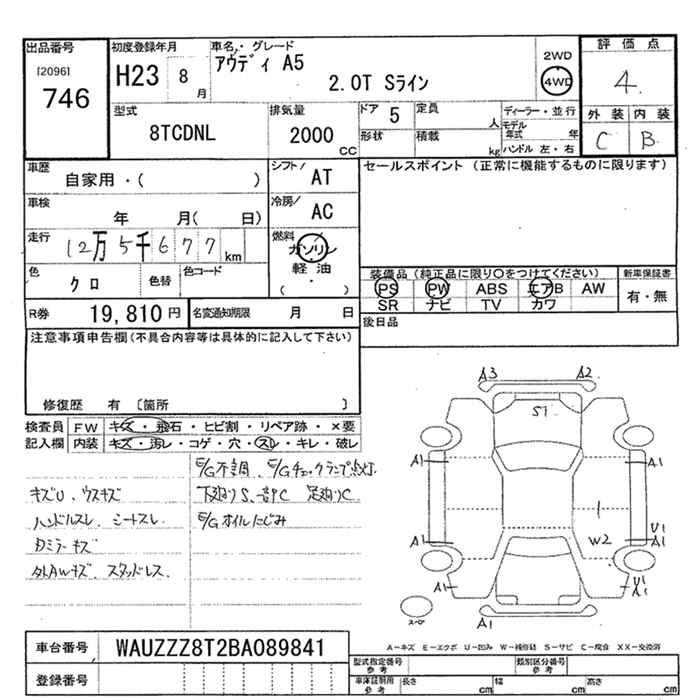 出品番号
[2096]
746
初度登録年月
H23 8
月
車名・グレード
アウディ A5
2.0T Sライン
2WD
4WD
評価点
4.
外装 内装
C B
型式
8TCDNL
排気量
2000
CC
ドア 5
形状
定員
人
積載
kg
ディーラー・並行
モデル
年式 年
ハンドル 左・右
車歴
自家用・( )
シフト/
AT
セールスポイント (正常に機能するものに限ります)
車検
年 月( 日)
冷房/
AC
走行
12万5千677
km
燃料/
ガソリン
軽油
( ・ )
色
クロ
色替
色コード
装備品(純正品に限り○をつけてください)
新車保証書
PS PW ABS エアB AW
SR ナビ TV カワ
有・無
R券
19,810円
名変通知期限
月 日
後日品
注意事項申告欄(不具合内容等は具体的に記入して下さい)
修復歴 有 〔箇所 〕
検査員
記入欄
FW キズ・飛石・ヒビ割・リペア跡・×要
内装 キズ・汚レ・コゲ・穴・スレ・キレ・破レ
E/G不調、E/Gチェックランプ点灯.
キズU、ウスキズ
下廻りS、一部PC 足廻りC
ハンドルスレ、シートスレ
E/Gオイルにじみ
カミラーキズ
外AWキズ、スタッドレス.
A3 A2
S1
A1 A1
A1 W2 U1
A1
A1 U1
A1
スペア
A1
A-キズ E-エクボ U-凹み W-補修跡 S-サビ C-腐食 XX-交換済
車台番号
WAUZZZ8T2BA089841
登録番号
型式指定番号
参考
類別区分番号
参考
車庫証明用
参考
長さ
cm
幅
cm
高さ
cm